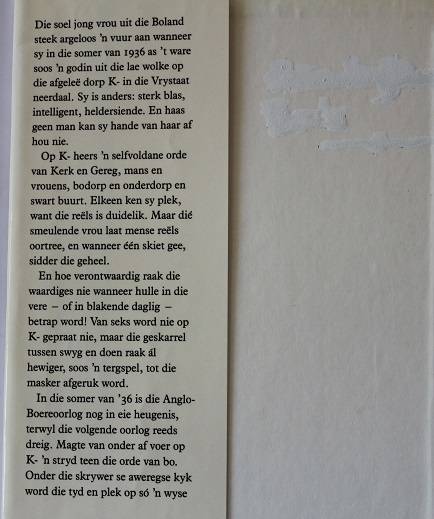 Die soel jong vrou uit die Boland
steek argeloos 'n vuur aan wanneer
sy in die somer van 1936 as 't ware
soos 'n godin uit die lae wolke op
die afgeleë dorp K- in die Vrystaat
neerdaal. Sy is anders: sterk blas,
intelligent, heldersiende. En haas
geen man kan sy hande van haar af
hou nie.
Op K- heers 'n selfvoldane orde
van Kerk en Gereg, mans en
vrouens, bodorp en onderdorp en
swart buurt. Elkeen ken sy plek,
want die reëls is duidelik. Maar dié
smeulende vrou laat mense reëls
oortree, en wanneer één skiet gee,
sidder die geheel.
En hoe verontwaardig raak die
waardiges nie wanneer hulle in die
vere – of in blakende daglig –
betrap word! Van seks word nie op
K- gepraat nie, maar die geskarrel
tussen swyg en doen raak ál
hewiger, soos 'n tergspel, tot die
masker afgeruk word.
In die somer van '36 is die Anglo-
Boereoorlog nog in eie heugenis,
terwyl die volgende oorlog reeds
dreig. Magte van onder af voer op
K- 'n stryd teen die orde van bo.
Onder die skrywer se aweregse kyk
word die tyd en plek op só 'n wyse